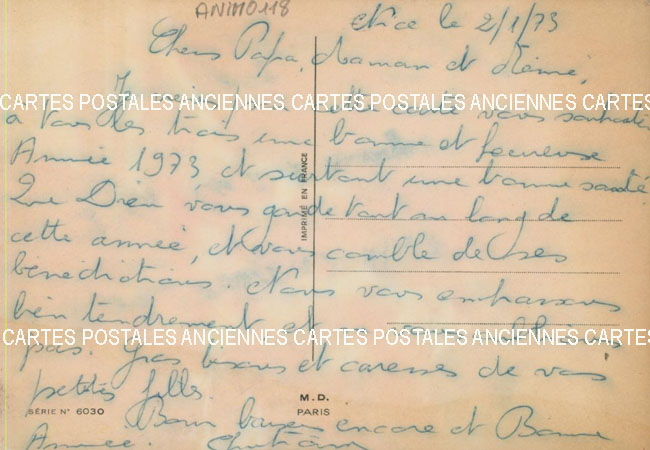 ANIM0118
Nice le 2/1/73
Chers Papa, Maman et Mémé,
Je viens par cette carte vous souhaiter
CARTES POSTALES ANCIENNES CARTES POSTALES ANCIENNES CARTES
à tous les trois une bonne et heureuse
Année 1973 et surtout une bonne santé
Que Dieu vous garde tout au long de
cette année, et vous comble de ses
bénédictions. Nous vous embrassons
bien tendrement et
CARTES POSTALES ANCIENNES CARTES POSTALES ANCIENNES CARTES
pas. Gros bisous et caresses de vos
petites filles.
Bons baisers encore et Bonne
Année.
IMPRIMÉ EN FRANCE
SÉRIE N° 6030
M.D.
PARIS